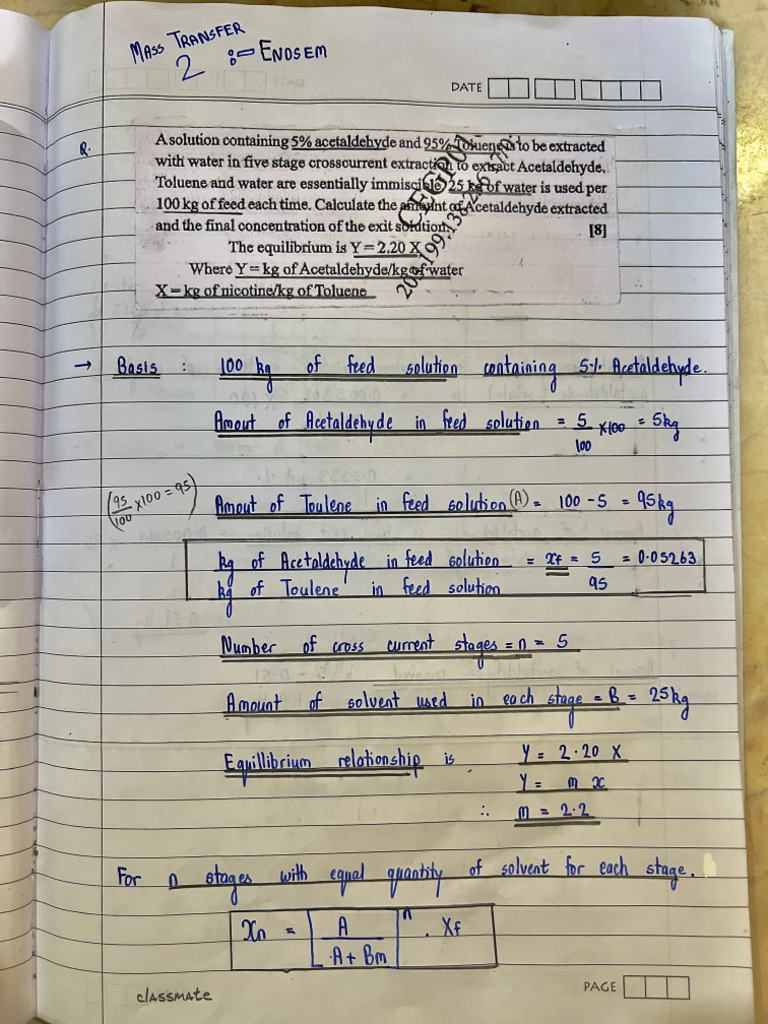 MASS TRANSFER
2 :- ENDSEM
DATE
Q.
A solution containing 5% acetaldehyde and 95% Toluene is to be extracted
with water in five stage crosscurrent extraction to extract Acetaldehyde.
Toluene and water are essentially immiscible 25 kg of water is used per
100 kg of feed each time. Calculate the amount of Acetaldehyde extracted
and the final concentration of the exit solution. [8]
The equilibrium is Y = 2.20 X
Where Y = kg of Acetaldehyde/kg of water
X = kg of nicotine/kg of Toluene
CEGP01
→ Basis : 100 kg of feed solution containing 5% Acetaldehyde.
Amout of Acetaldehyde in feed solution = 5/100 x100 = 5kg
(95/100 x100 = 95) Amout of Toulene in feed solution (A) = 100 - 5 = 95kg
kg of Acetaldehyde in feed solution / kg of Toulene in feed solution = xf = 5/95 = 0.05263
Number of cross current stages = n = 5
Amount of solvent used in each stage = B = 25kg
Equillibrium relationship is Y = 2.20 X
Y = m x
∴ m = 2.2
For n stages with equal quantity of solvent for each stage.
Xn = [A / A + Bm]^n . Xf
classmate
PAGE